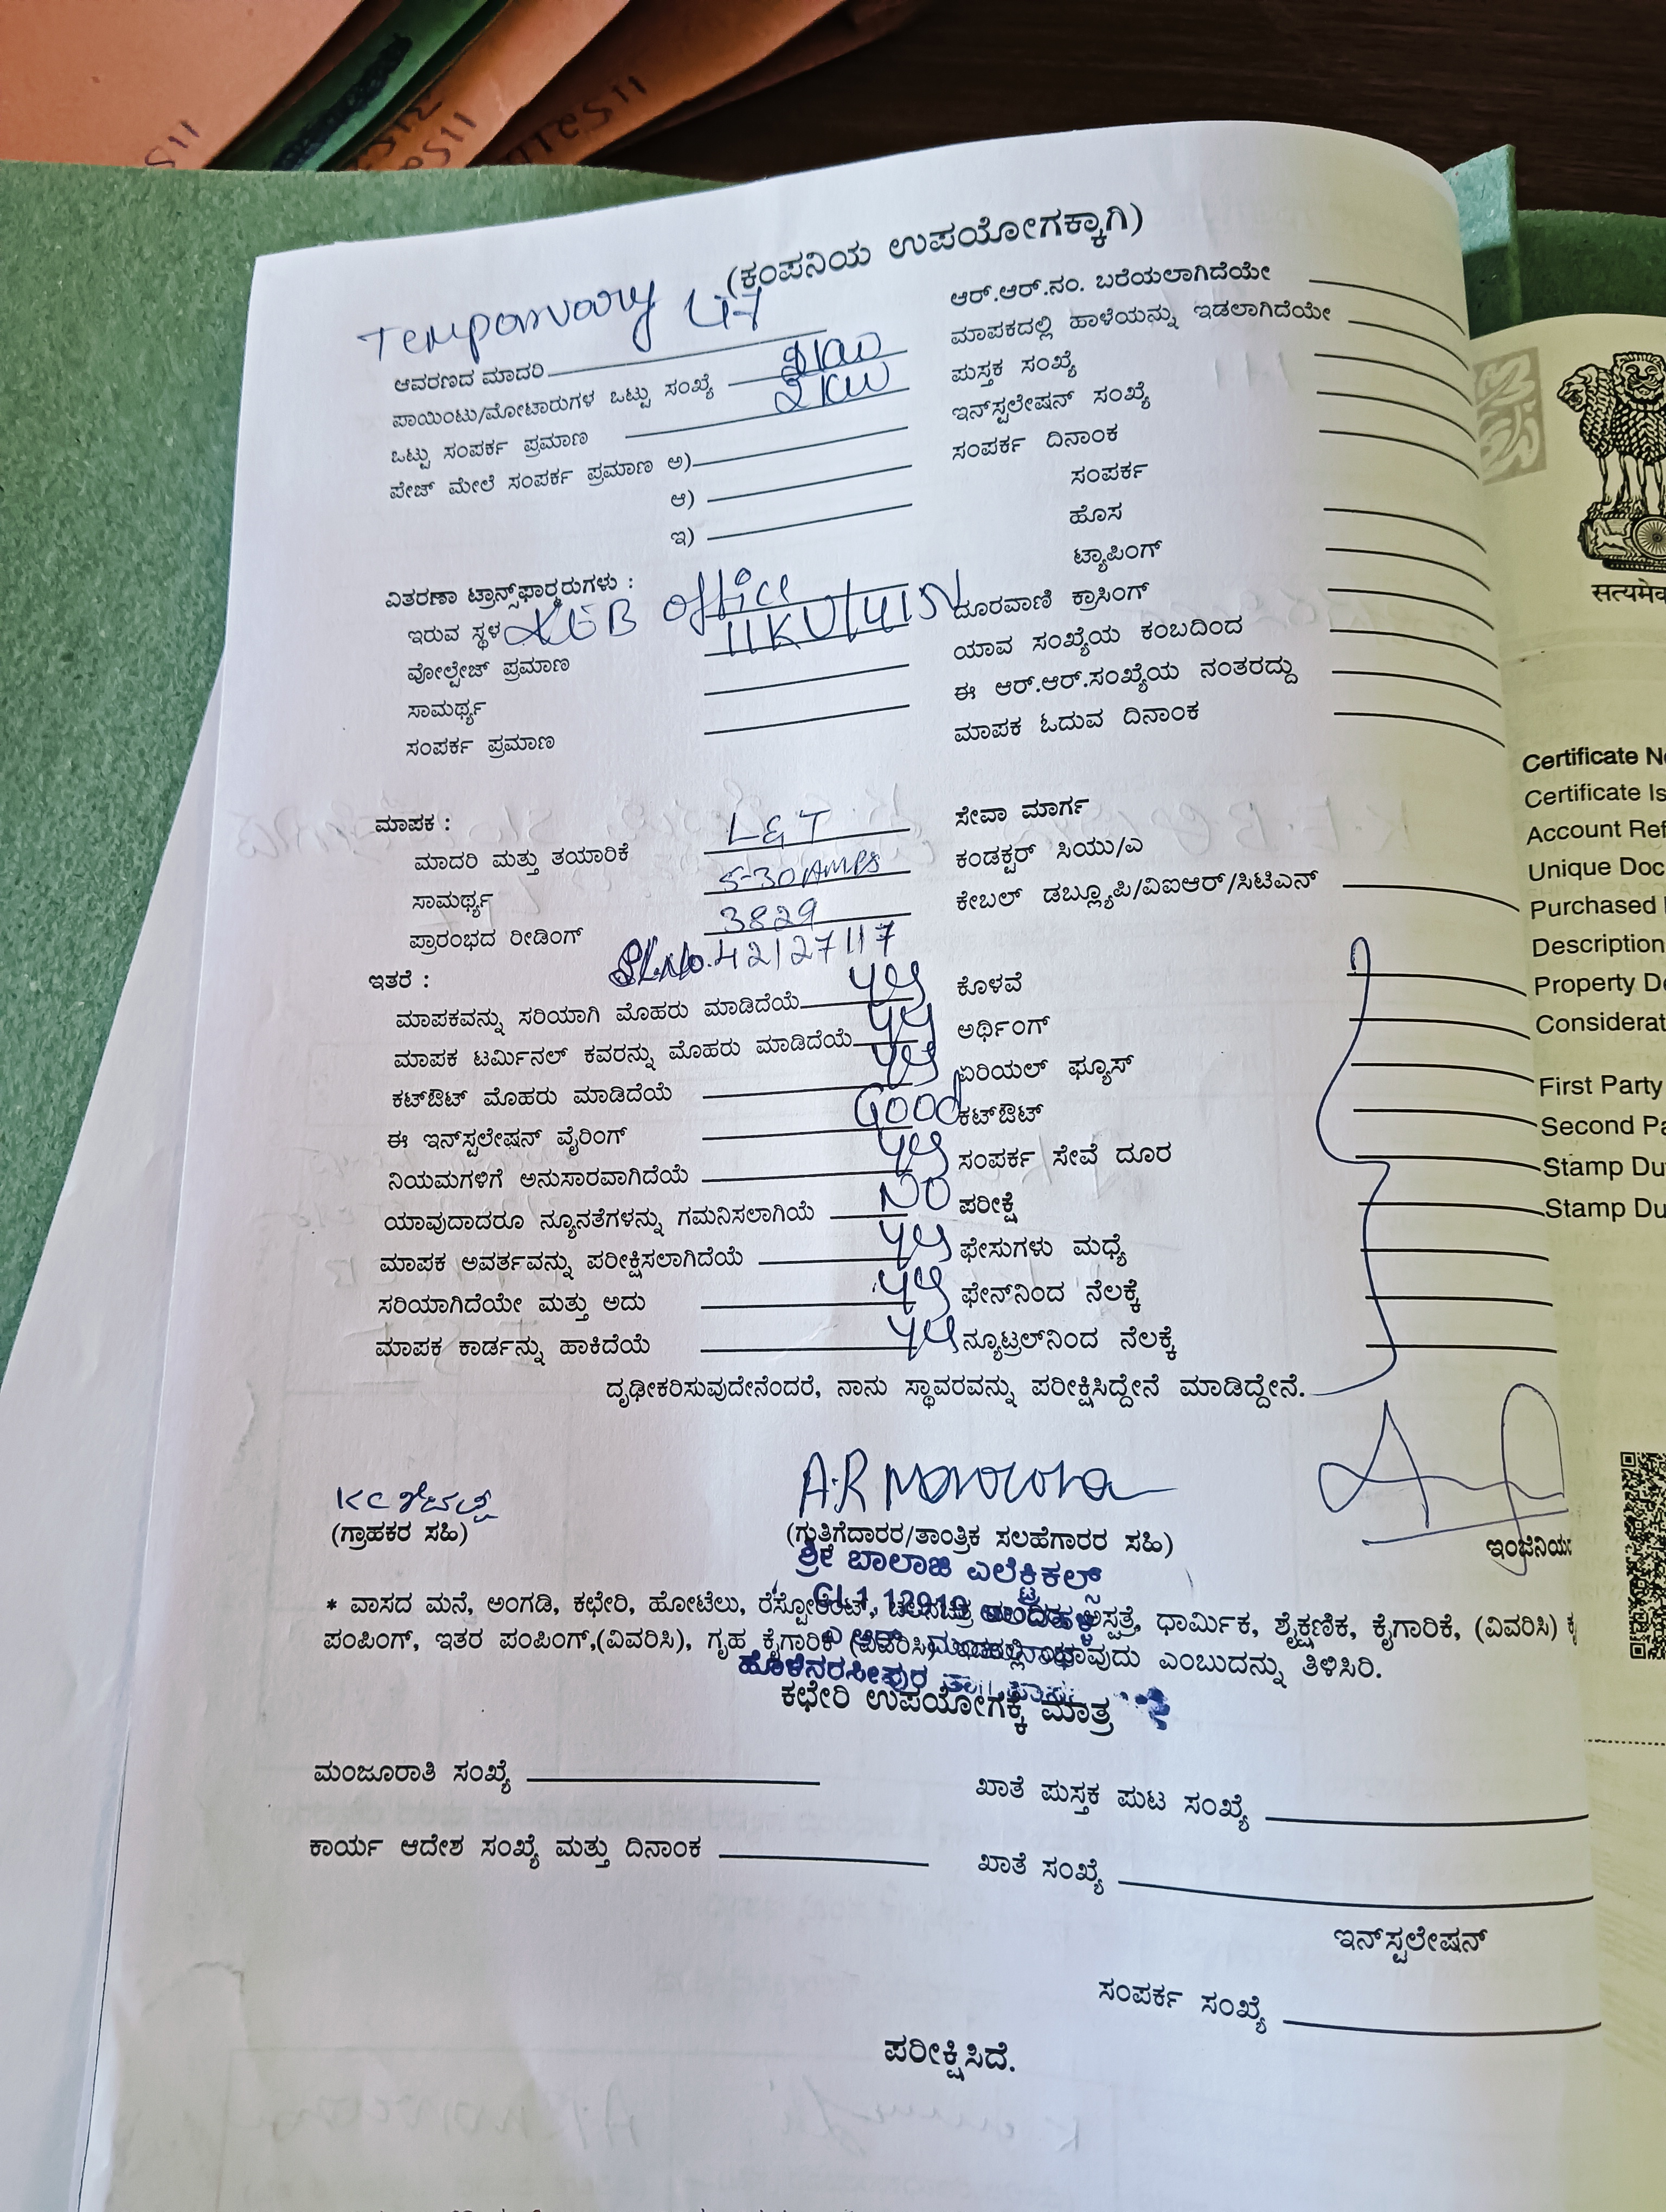 (ಕಂಪನಿಯ ಉಪಯೋಗಕ್ಕಾಗಿ)
Temporary
ಆವರಣದ ಮಾದರಿ
ಪಾಯಿಂಟು/ಮೋಟಾರುಗಳ ಒಟ್ಟು ಸಂಖ್ಯೆ
ಒಟ್ಟು ಸಂಪರ್ಕ ಪ್ರಮಾಣ 2 KW
ಪೇಜ್ ಮೇಲೆ ಸಂಪರ್ಕ ಪ್ರಮಾಣ ಅ)
ಆ)
ಇ)
ವಿತರಣಾ ಟ್ರಾನ್ಸ್‌ಫಾರ್ಮರುಗಳು :
ಇರುವ ಸ್ಥಳ KEB office
ವೋಲ್ಟೇಜ್ ಪ್ರಮಾಣ 11KV/415V
ಸಾಮರ್ಥ್ಯ
ಸಂಪರ್ಕ ಪ್ರಮಾಣ
ಮಾಪಕ :
ಮಾದರಿ ಮತ್ತು ತಯಾರಿಕೆ L&T
ಸಾಮರ್ಥ್ಯ 5-30 Amps
ಪ್ರಾರಂಭದ ರೀಡಿಂಗ್ 3829
Sl.No. 42127117
ಇತರೆ :
ಮಾಪಕವನ್ನು ಸರಿಯಾಗಿ ಮೊಹರು ಮಾಡಿದೆಯೆ yes
ಮಾಪಕ ಟರ್ಮಿನಲ್ ಕವರನ್ನು ಮೊಹರು ಮಾಡಿದೆಯೆ yes
ಕಟ್‌ಔಟ್ ಮೊಹರು ಮಾಡಿದೆಯೆ yes
ಈ ಇನ್‌ಸ್ಟಲೇಷನ್ ವೈರಿಂಗ್ Good
ನಿಯಮಗಳಿಗೆ ಅನುಸಾರವಾಗಿದೆಯೆ yes
ಯಾವುದಾದರೂ ನ್ಯೂನತೆಗಳನ್ನು ಗಮನಿಸಲಾಗಿಯೆ NO
ಮಾಪಕ ಅವರ್ತವನ್ನು ಪರೀಕ್ಷಿಸಲಾಗಿದೆಯೆ yes
ಸರಿಯಾಗಿದೆಯೇ ಮತ್ತು ಅದು yes
ಮಾಪಕ ಕಾರ್ಡನ್ನು ಹಾಕಿದೆಯೆ yes
ಆರ್.ಆರ್.ನಂ. ಬರೆಯಲಾಗಿದೆಯೇ
ಮಾಪಕದಲ್ಲಿ ಹಾಳೆಯನ್ನು ಇಡಲಾಗಿದೆಯೇ
ಪುಸ್ತಕ ಸಂಖ್ಯೆ
ಇನ್‌ಸ್ಟಲೇಷನ್ ಸಂಖ್ಯೆ
ಸಂಪರ್ಕ ದಿನಾಂಕ
ಸಂಪರ್ಕ
ಹೊಸ
ಟ್ಯಾಪಿಂಗ್
ದೂರವಾಣಿ ಕ್ರಾಸಿಂಗ್
ಯಾವ ಸಂಖ್ಯೆಯ ಕಂಬದಿಂದ
ಈ ಆರ್.ಆರ್.ಸಂಖ್ಯೆಯ ನಂತರದ್ದು
ಮಾಪಕ ಓದುವ ದಿನಾಂಕ
ಸೇವಾ ಮಾರ್ಗ
ಕಂಡಕ್ಟರ್ ಸಿಯು/ಎ
ಕೇಬಲ್ ಡಬ್ಲ್ಯೂಪಿ/ವಿಐಆರ್/ಸಿಟಿಎನ್
ಕೊಳವೆ
ಅರ್ಥಿಂಗ್
ಏರಿಯಲ್ ಫ್ಯೂಸ್
ಕಟ್‌ಔಟ್
ಸಂಪರ್ಕ ಸೇವೆ ದೂರ
ಪರೀಕ್ಷೆ
ಫೇಸುಗಳು ಮಧ್ಯೆ
ಫೇನ್‌ನಿಂದ ನೆಲಕ್ಕೆ
ನ್ಯೂಟ್ರಲ್‌ನಿಂದ ನೆಲಕ್ಕೆ
ದೃಢೀಕರಿಸುವುದೇನೆಂದರೆ, ನಾನು ಸ್ಥಾವರವನ್ನು ಪರೀಕ್ಷಿಸಿದ್ದೇನೆ ಮಾಡಿದ್ದೇನೆ.
(ಗ್ರಾಹಕರ ಸಹಿ)
(ಗುತ್ತಿಗೆದಾರರ/ತಾಂತ್ರಿಕ ಸಲಹೆಗಾರರ ಸಹಿ)
ಶ್ರೀ ಬಾಲಾಜಿ ಎಲೆಕ್ಟ್ರಿಕಲ್ಸ್
* ವಾಸದ ಮನೆ, ಅಂಗಡಿ, ಕಛೇರಿ, ಹೋಟೆಲು, ರೆಸ್ಟೋರೆಂಟ್, ಧಾರ್ಮಿಕ, ಶೈಕ್ಷಣಿಕ, ಕೈಗಾರಿಕೆ, (ವಿವರಿಸಿ)
ಪಂಪಿಂಗ್, ಇತರ ಪಂಪಿಂಗ್,(ವಿವರಿಸಿ), ಗೃಹ ಕೈಗಾರಿಕೆ (ವಿವರಿಸಿ) ಯಾವುದು ಎಂಬುದನ್ನು ತಿಳಿಸಿರಿ.
ಹೊಳೆನರಸೀಪುರ
ಕಛೇರಿ ಉಪಯೋಗಕ್ಕೆ ಮಾತ್ರ
ಮಂಜೂರಾತಿ ಸಂಖ್ಯೆ
ಖಾತೆ ಪುಸ್ತಕ ಪುಟ ಸಂಖ್ಯೆ
ಕಾರ್ಯ ಆದೇಶ ಸಂಖ್ಯೆ ಮತ್ತು ದಿನಾಂಕ
ಖಾತೆ ಸಂಖ್ಯೆ
ಇನ್‌ಸ್ಟಲೇಷನ್
ಸಂಪರ್ಕ ಸಂಖ್ಯೆ
ಪರೀಕ್ಷಿಸಿದೆ.
Certificate
Certificate
Account
Unique
Purchased
Description
Property
First Party
Second
Stamp
Stamp